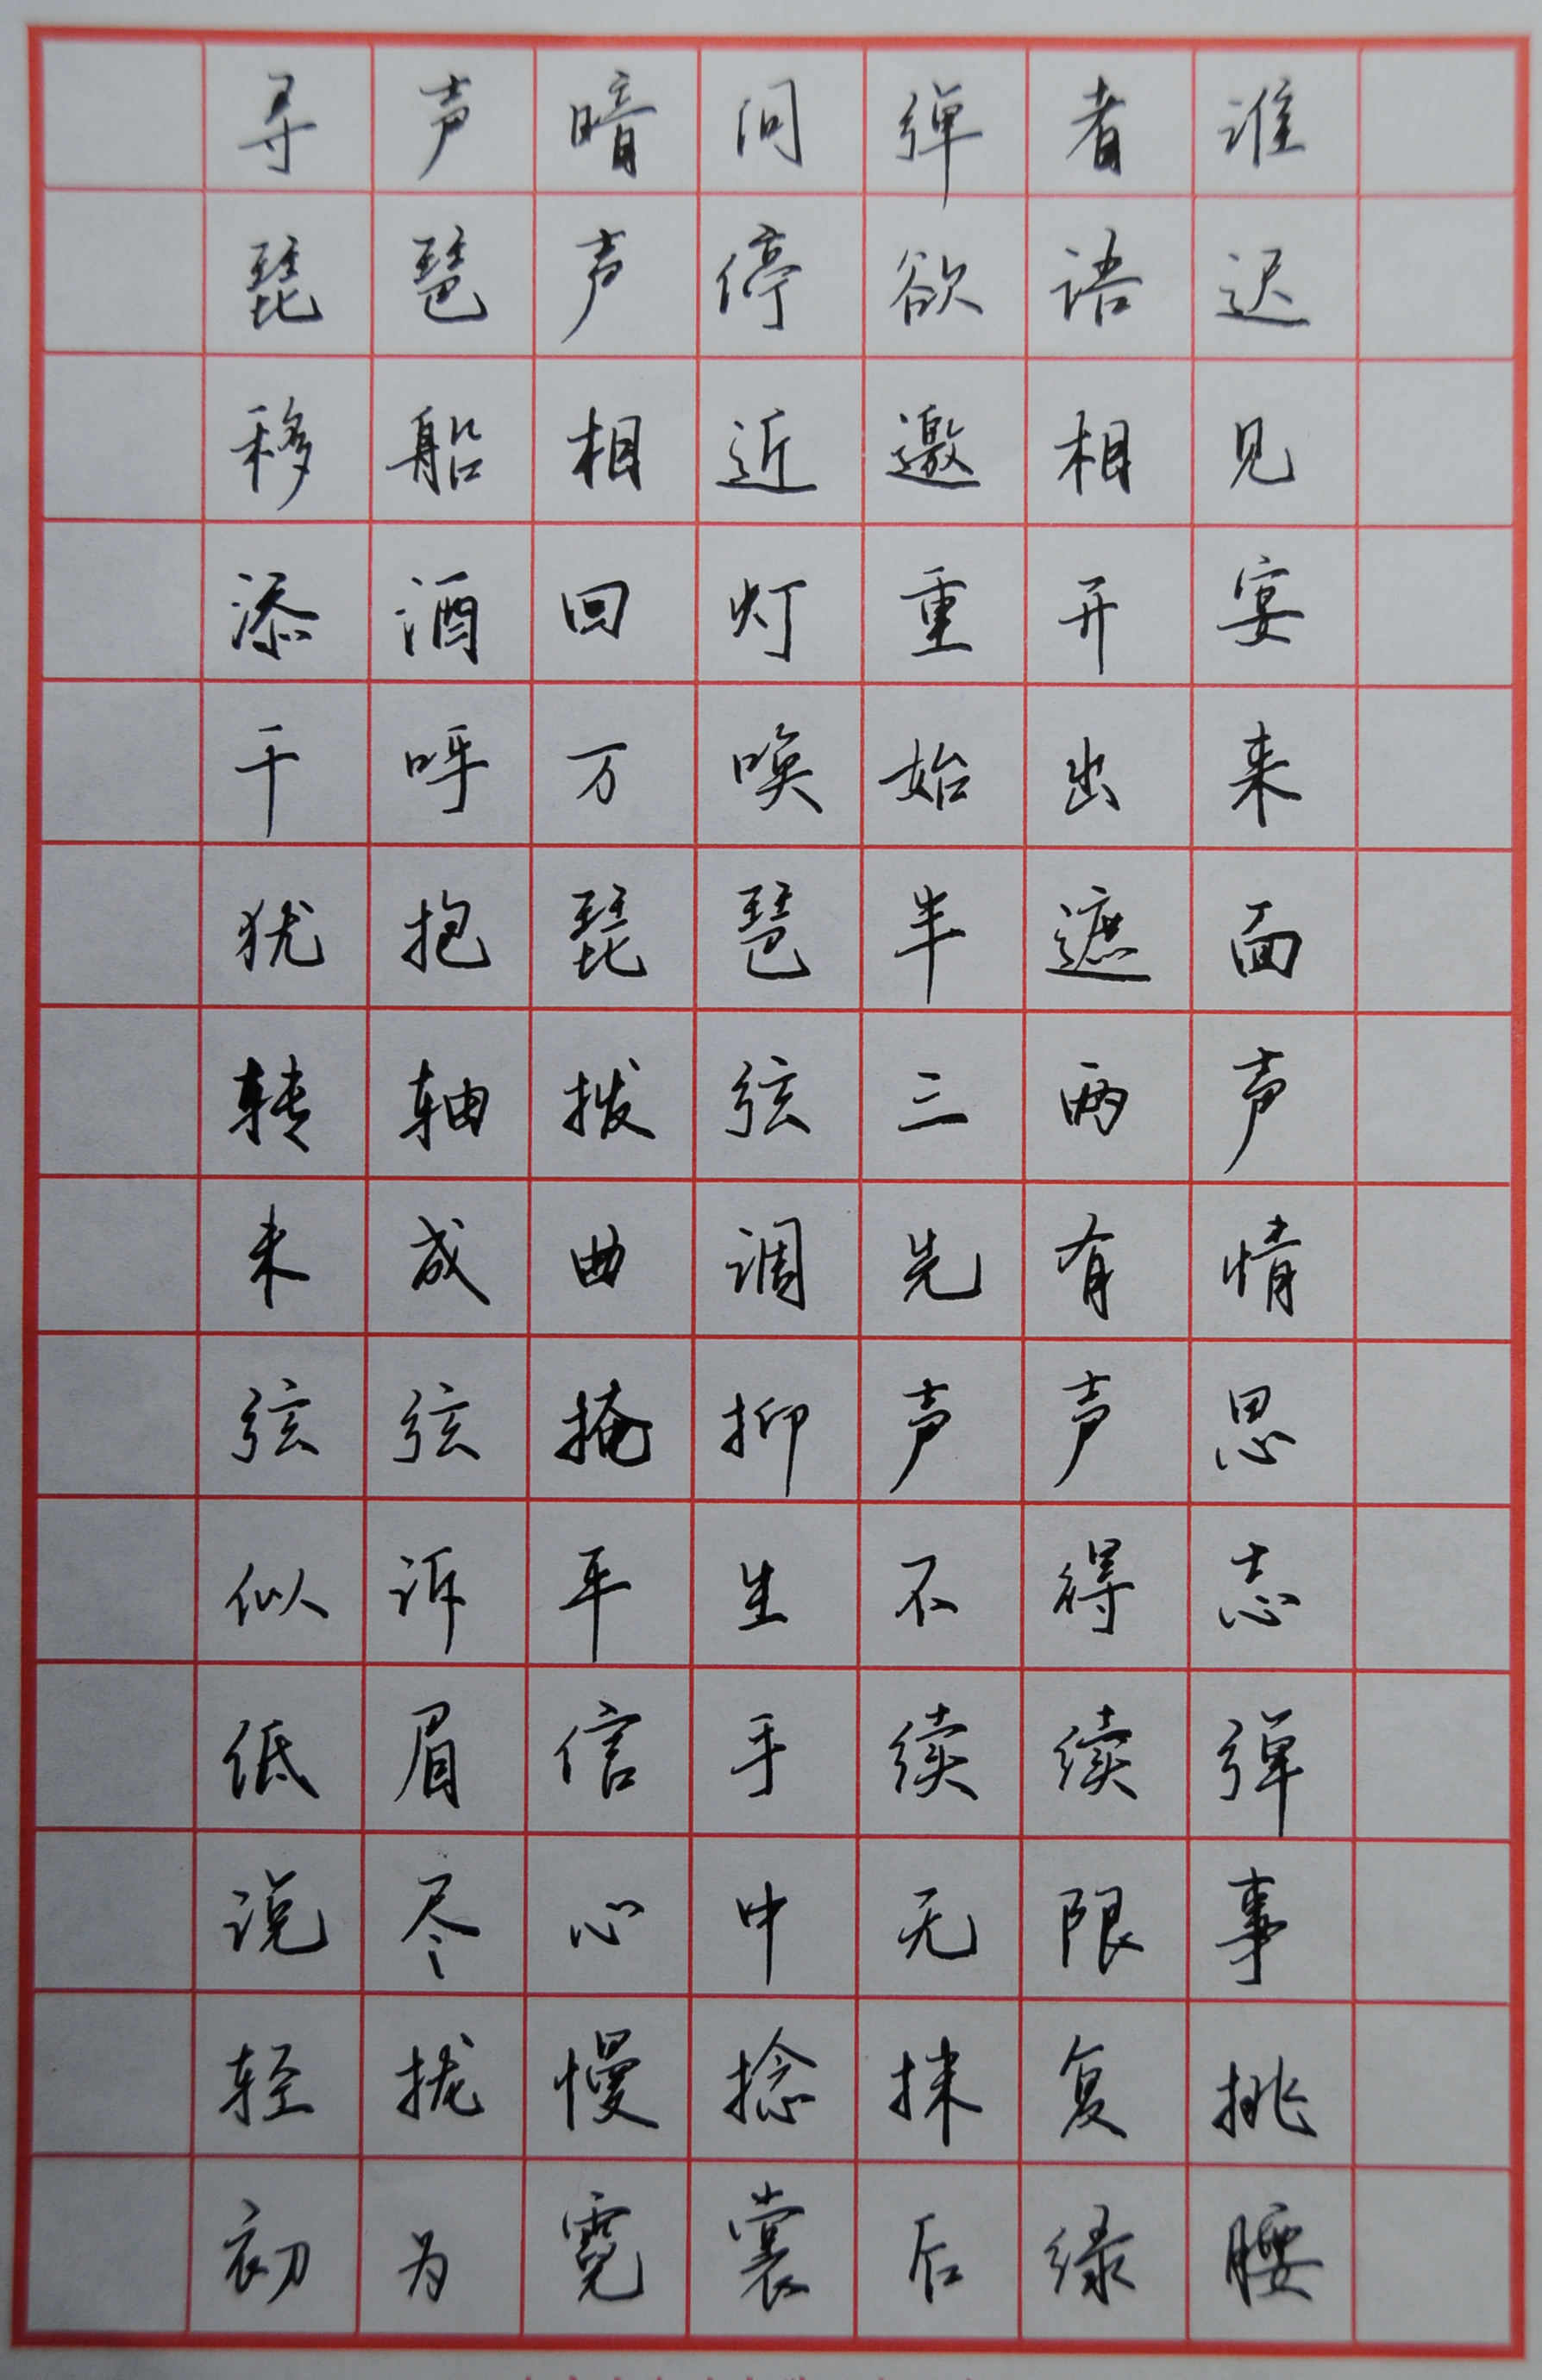 寻声暗问弹者谁
琵琶声停欲语迟
移船相近邀相见
添酒回灯重开宴
千呼万唤始出来
犹抱琵琶半遮面
转轴拨弦三两声
未成曲调先有情
弦弦掩抑声声思
似诉平生不得志
低眉信手续续弹
说尽心中无限事
轻拢慢捻抹复挑
初为霓裳后绿腰